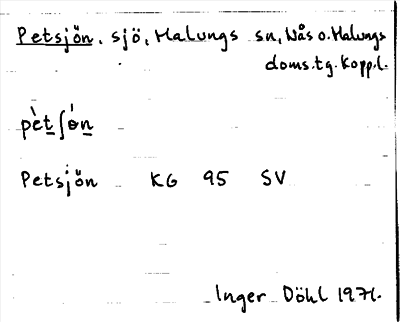 Petsjön, sjö, Malungs sn, Nås o. Malungs
doms.tg. Kopp.l.
pètʃò̩n
Petsjön KG 95 SV
Inger Döhl 1971.